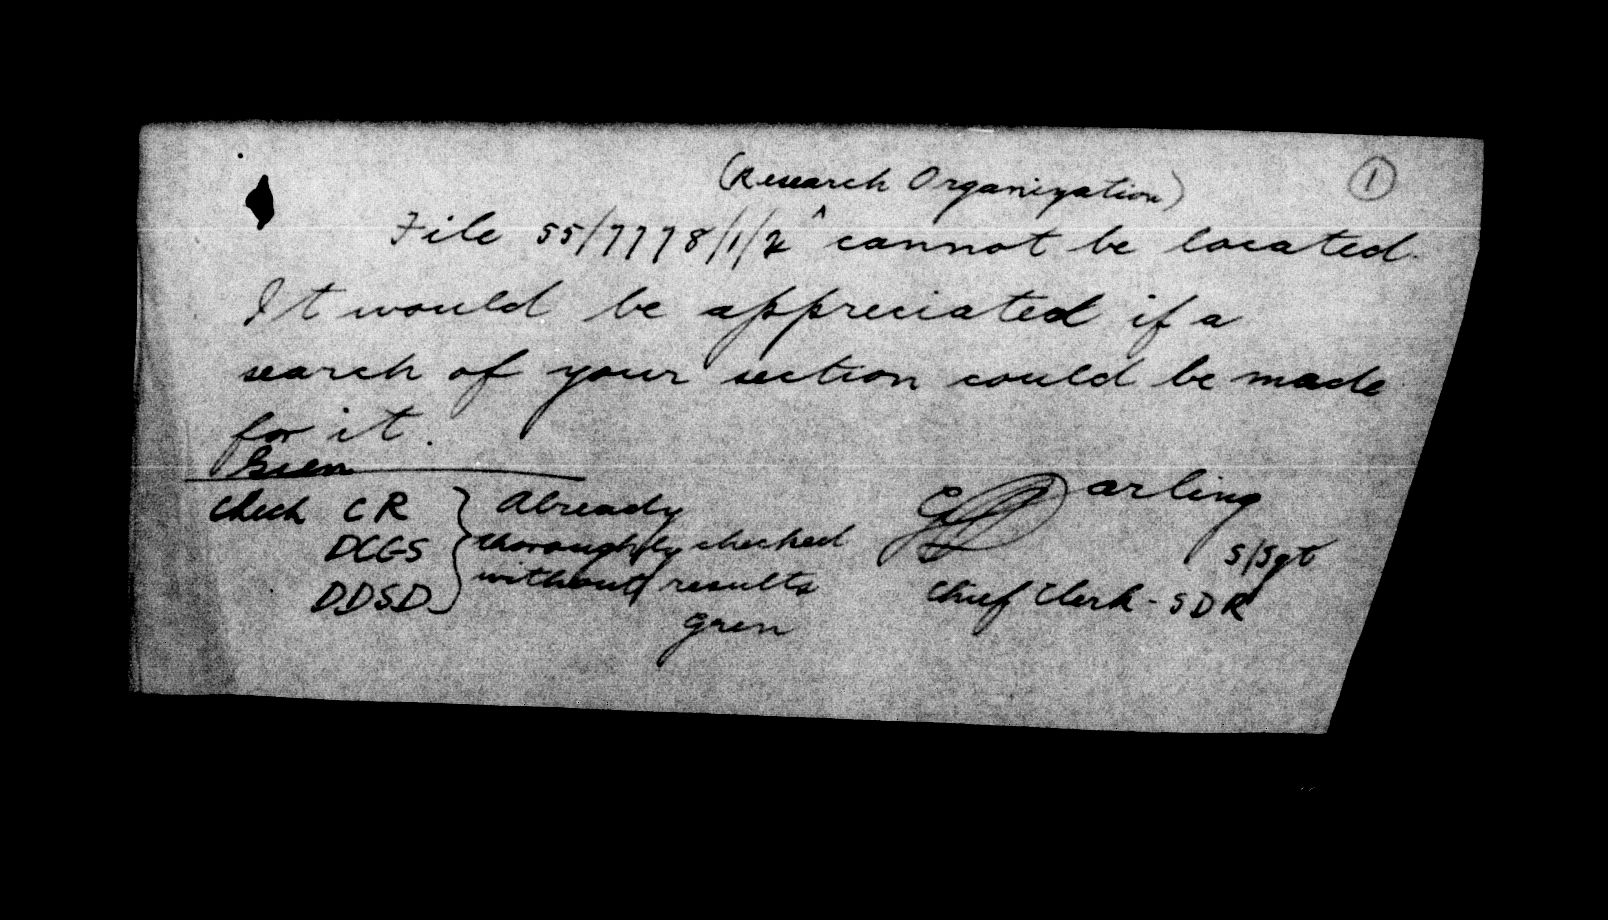 (Research Organization) 1
File 55/7778/1/2 ^ cannot be located.
It would be appreciated if a
search of your section could be made
for it.
Gren
Check CR } Already
DCGS } thoroughly checked
DDSD } without results
Gren
Darling
S/Sgt
Chief Clerk - SDR